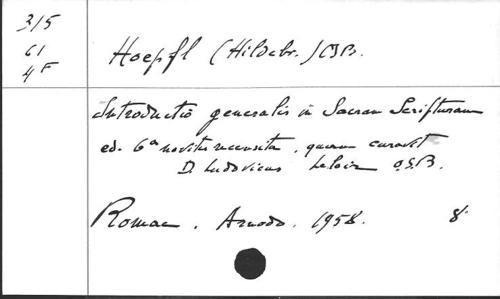 315
61
4F
Hoepfl (Hildebr.) OSB.
Introductio generalis in Sacram Scripturam
ed. 6a noviter recensita, quam curavit
D. Ludovicus Leloir O.S.B.
Romae. Arnodo. 1958. 8°